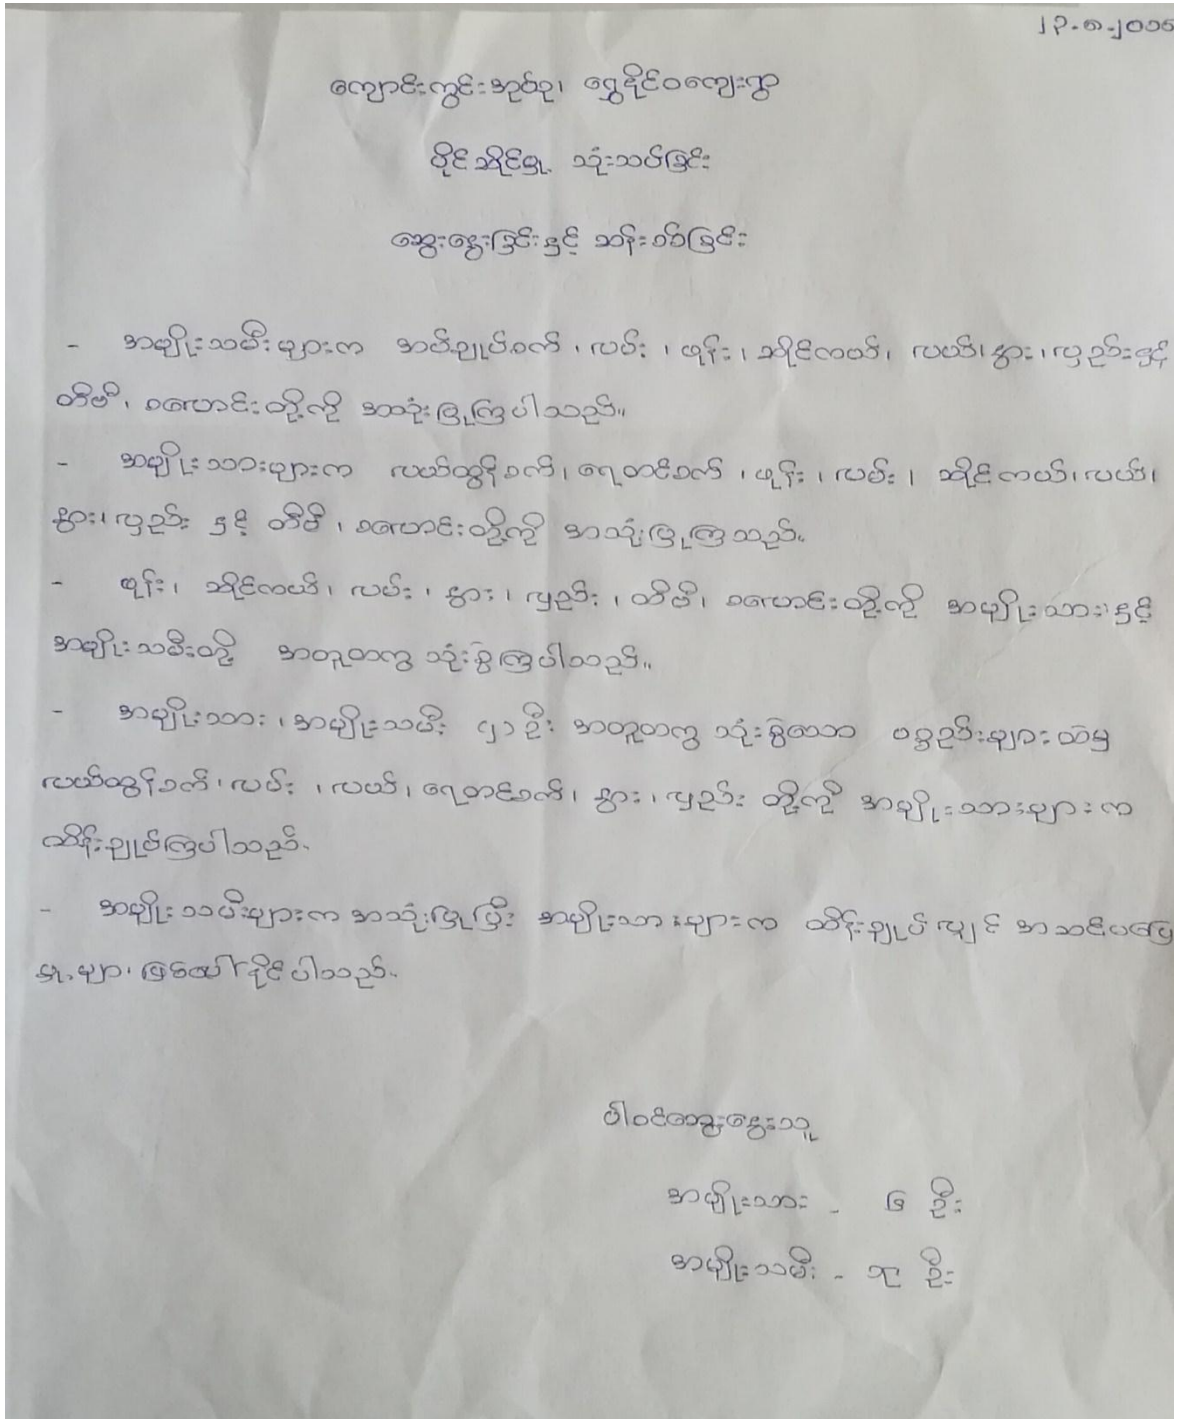 ၂၃-၈-၂၀၁၆
ကျောင်းကွင်းအုပ်စု၊ ရွှေနိုင်ဝကျေးရွာ
ပိုင်ဆိုင်မှု သုံးသပ်ခြင်း
ဆွေးနွေးခြင်းနှင့် ဆန်းစစ်ခြင်း
- အမျိုးသမီးများက အပ်ချုပ်စက်၊ လမ်း၊ ဖုန်း၊ ဆိုင်ကယ်၊ လယ်၊ နွား၊ လှည်းနှင့်
တီဗီ၊ စလောင်းတို့ကို အသုံးပြုကြပါသည်။
- အမျိုးသားများက လယ်ထွန်စက်၊ ရေတင်စက်၊ ဖုန်း၊ လမ်း၊ ဆိုင်ကယ်၊ လယ်၊
နွား၊ လှည်း နှင့် တီဗီ၊ စလောင်းတို့ကို အသုံးပြုကြသည်။
- ဖုန်း၊ ဆိုင်ကယ်၊ လမ်း၊ နွား၊ လှည်း၊ တီဗီ၊ စလောင်းတို့ကို အမျိုးသားနှင့်
အမျိုးသမီးတို့ အတူတကွ သုံးစွဲကြပါသည်။
- အမျိုးသား၊ အမျိုးသမီး ၄၁ ဦး အတူတကွ သုံးစွဲသော ပစ္စည်းများထဲမှ
လယ်ထွန်စက်၊ လမ်း၊ လယ်၊ ရေတင်စက်၊ နွား၊ လှည်း တို့ကို အမျိုးသားများက
ထိန်းချုပ်ကြပါသည်။
- အမျိုးသမီးများက အသုံးပြုပြီး အမျိုးသားများက ထိန်းချုပ်လျှင် အဆင်မပြေ
မှုများ ဖြစ်ပေါ်နိုင်ပါသည်။
ပါဝင်ဆွေးနွေးသူ
အမျိုးသား - ၆ ဦး
အမျိုးသမီး - ၁၄ ဦး